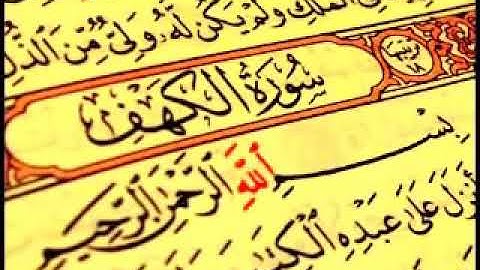 فِي الْمُلْكِ وَلَمْ يَكُن لَّهُ وَلِيٌّ مِّنَ الذُّلِّ
سُورَةُ الْكَهْفِ
بِسْمِ اللَّهِ الرَّحْمَٰنِ الرَّحِيمِ
أَنزَلَ عَلَىٰ عَبْدِهِ الْكِتَٰبَ